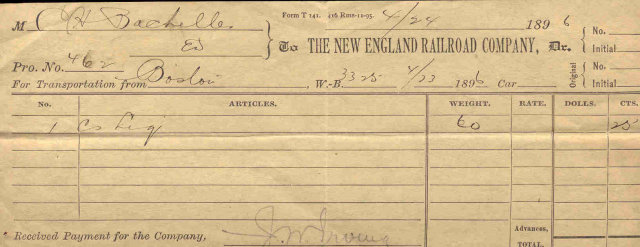 Form T 241. 416 Rms-11-95. 4/24 1896
M C H Bachelle
Ed
To THE NEW ENGLAND RAILROAD COMPANY, Dr.
No.
Initial
Pro. No. 462
For Transportation from Boston W.-B. 3325 4/23 1896 Car
Original
No.
Initial
No. ARTICLES. WEIGHT. RATE. DOLLS. CTS.
1 Cs Liq 60 25
Received Payment for the Company, J. W. Irving
Advances,
TOTAL,